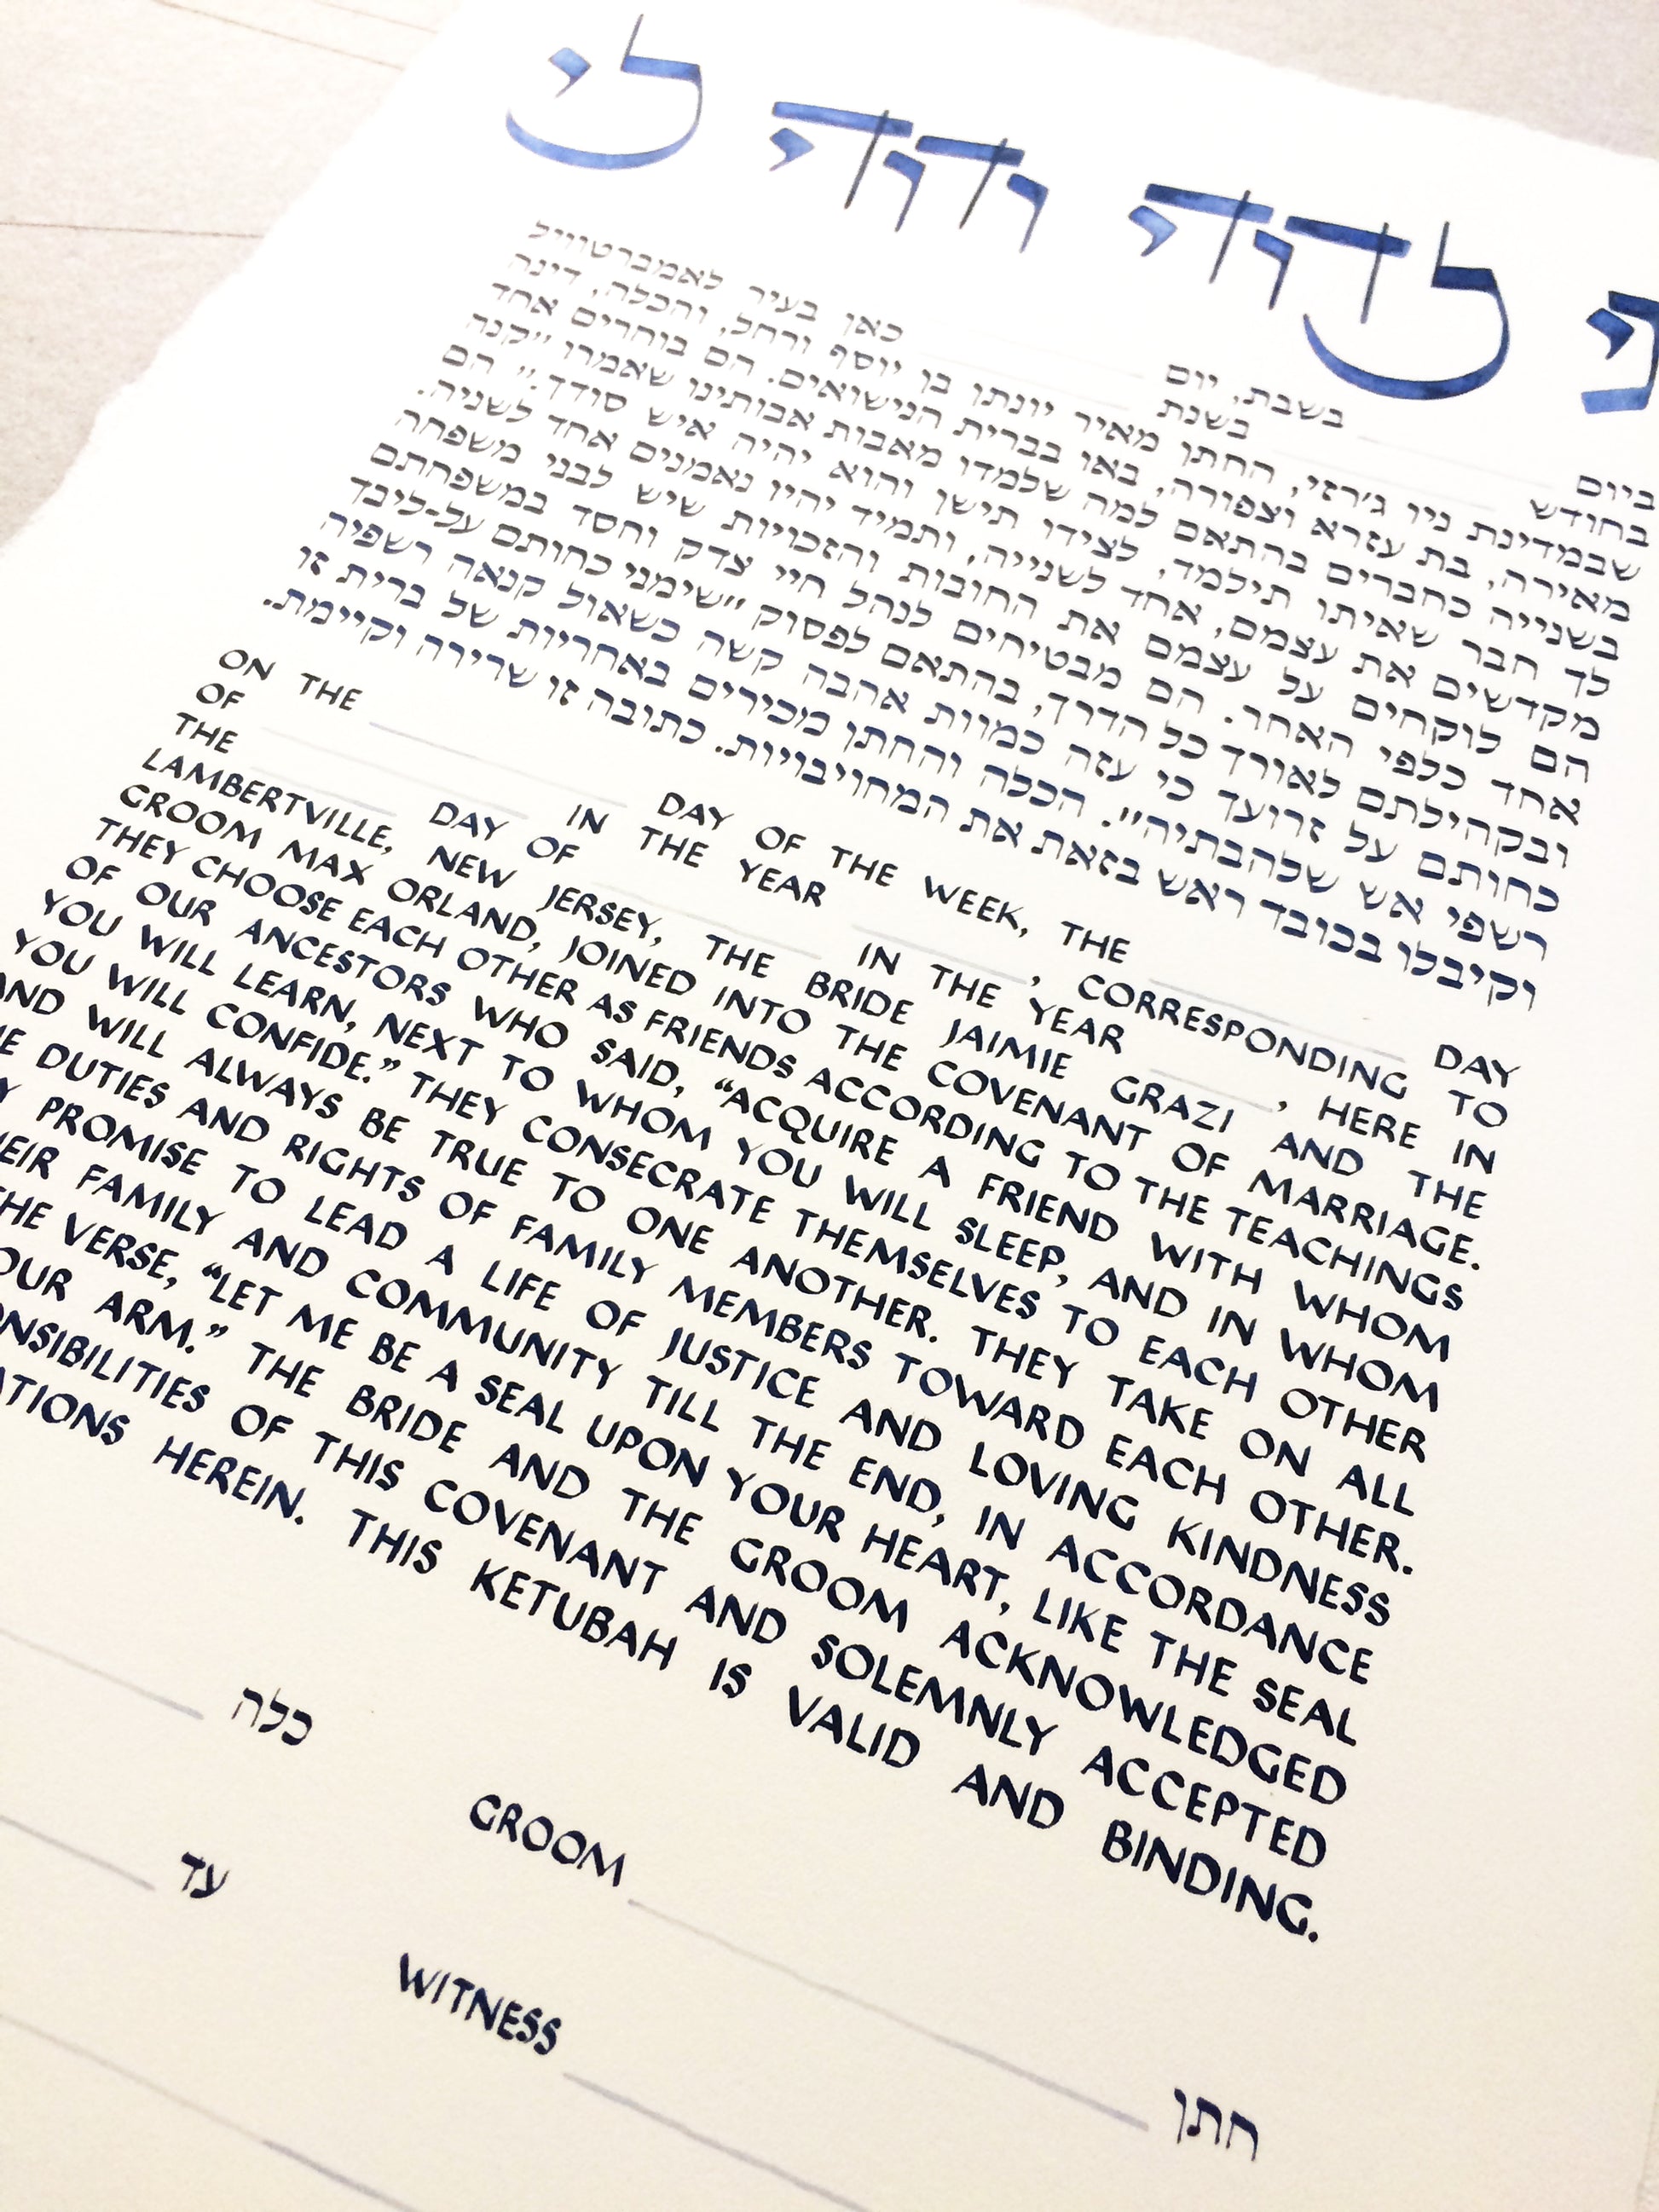 ני לדודי ודודי לי
ביום בשבת, יום
בחודש בשנת כאן בעיר לאמברטוויל
שבמדינת ניו ג׳רזי, החתן מאיר יונתן בן יוסף ורחל, והכלה, דינה
מאירה, בת עזרא וצפורה, באו בברית הנישואים. הם בוחרים אחד
בשנייה כחברים בהתאם למה שלמדו מאבות אבותינו שאמרו "קנה
לך חבר שאיתו תילמד, לצידו תישן והוא יהיה איש סודך." הם
מקדשים את עצמם, אחד לשנייה, ותמיד יהיו נאמנים אחד לשניה.
הם לוקחים על עצמם את החובות והזכויות שיש לבני משפחה
אחד כלפי האחר. הם מבטיחים לנהל חיי צדק וחסד במשפחתם
ובקהילתם לאורך כל הדרך, בהתאם לפסוק "שימני כחותם על-ליבך
כחותם על זרועך כי עזה כמוות אהבה קשה כשאול קנאה רשפיה
רשפי אש שלהבתיה". הכלה והחתן מכירים באחריות של ברית זו
וקיבלו בכובד ראש בזאת את המחויבויות. כתובה זו שרירה וקיימת.
ON THE DAY OF THE WEEK, THE DAY
OF IN THE YEAR , CORRESPONDING TO
THE DAY OF IN THE YEAR , HERE IN
LAMBERTVILLE, NEW JERSEY, THE BRIDE JAIMIE GRAZI AND THE
GROOM MAX ORLAND, JOINED INTO THE COVENANT OF MARRIAGE.
THEY CHOOSE EACH OTHER AS FRIENDS ACCORDING TO THE TEACHINGS
OF OUR ANCESTORS WHO SAID, “ACQUIRE A FRIEND WITH WHOM
YOU WILL LEARN, NEXT TO WHOM YOU WILL SLEEP, AND IN WHOM
YOU WILL CONFIDE.” THEY CONSECRATE THEMSELVES TO EACH OTHER
AND WILL ALWAYS BE TRUE TO ONE ANOTHER. THEY TAKE ON ALL
E DUTIES AND RIGHTS OF FAMILY MEMBERS TOWARD EACH OTHER.
Y PROMISE TO LEAD A LIFE OF JUSTICE AND LOVING KINDNESS
EIR FAMILY AND COMMUNITY TILL THE END, IN ACCORDANCE
THE VERSE, “LET ME BE A SEAL UPON YOUR HEART, LIKE THE SEAL
OUR ARM.” THE BRIDE AND THE GROOM ACKNOWLEDGED
ONSIBILITIES OF THIS COVENANT AND SOLEMNLY ACCEPTED
ATIONS HEREIN. THIS KETUBAH IS VALID AND BINDING.
כלה
GROOM חתן
עד
WITNESS